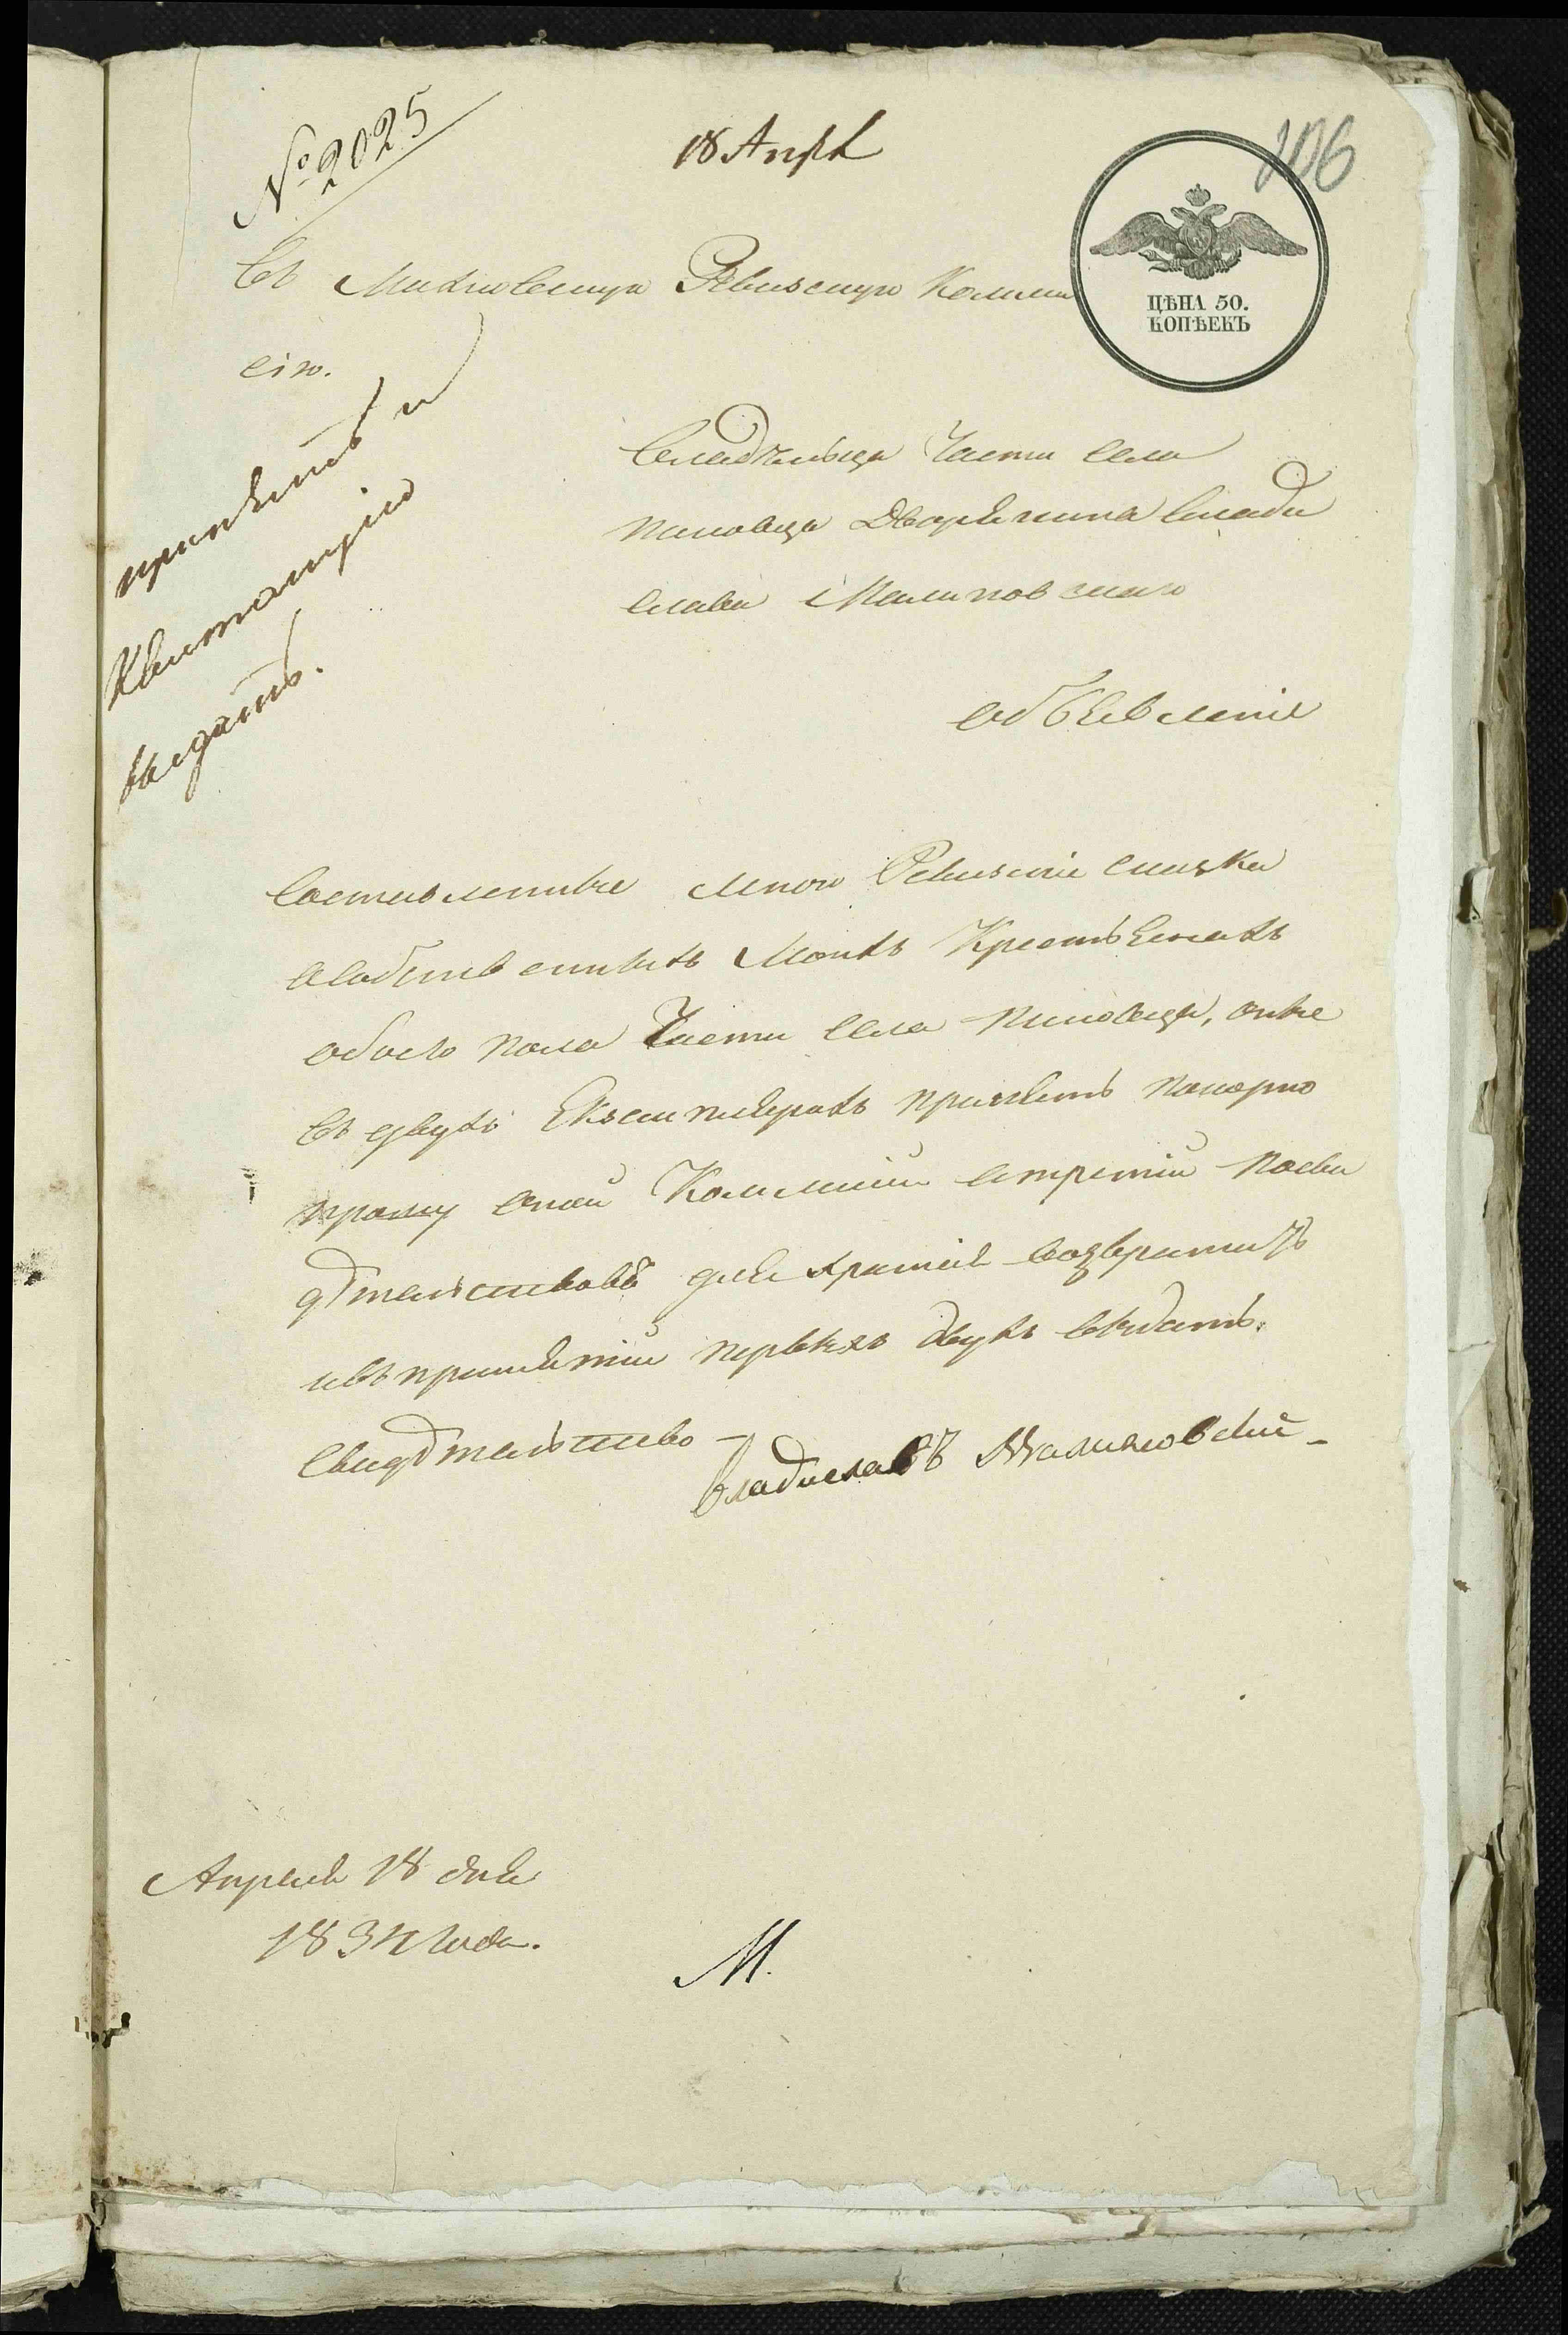 № 2025
18 Апрѣл
106
Въ Махновскую Ревизскую Коммис
сію.
ЦѢНА 50.
КОПѢЕКЪ
принять и
Квитанцію
выдать.
Владѣльца Части села
Пиковца Дворянина Влади
слава Малиновскаго
объявленіе
Составленные мною Ревизскіе сказки
о собственныхъ моихъ Крестьянахъ
обоего пола Части села Пиковца, оные
въ двухъ Екземплярахъ принять покорно
прошу оной Коммисіи а третій посви
дѣтельствовавъ для храненія возвратить
и въ принятіи первыхъ двухъ выдать
свидѣтельство —
Владиславъ Малиновскій —
Апреля 18 дня
1834 года.
М.